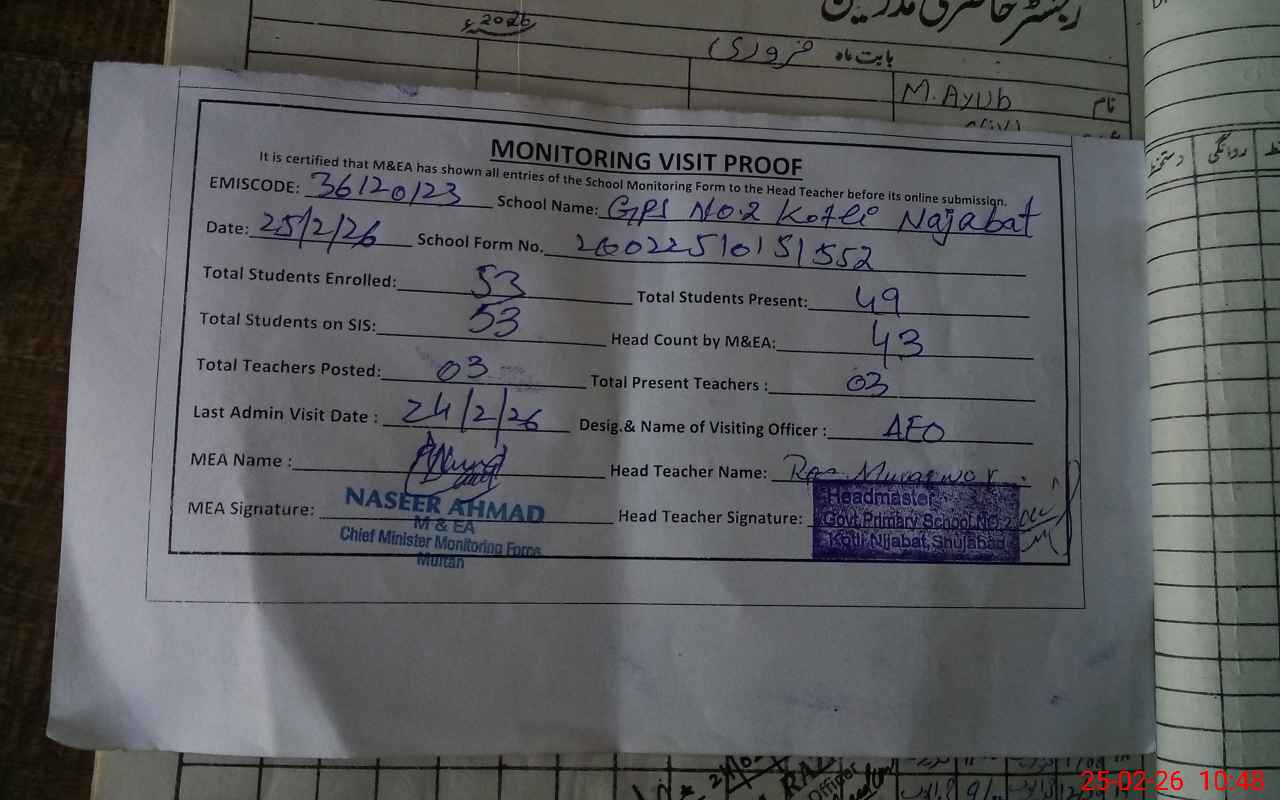 رجسٹر حاضری مدرسین
2026ء
بابت ماہ فروری
نام M. AYUB
دستخط روانگی
MONITORING VISIT PROOF
It is certified that M&EA has shown all entries of the School Monitoring Form to the Head Teacher before its online submission.
EMISCODE: 36120123 School Name: GPS NO.2 Kotli Najabat
Date: 25/2/26 School Form No. 26022510151552
Total Students Enrolled: 53 Total Students Present: 49
Total Students on SIS: 53 Head Count by M&EA: 43
Total Teachers Posted: 03 Total Present Teachers : 03
Last Admin Visit Date : 24/2/26 Desig.& Name of Visiting Officer : AEO
MEA Name : Head Teacher Name: Rao
MEA Signature: Head Teacher Signature:
NASEER AHMAD
M & EA
Chief Minister Monitoring Force
Multan
Headmaster
Govt Primary School NO.2
Kotli Nijabat, Shujabad
Officer
25-02-26 10:48